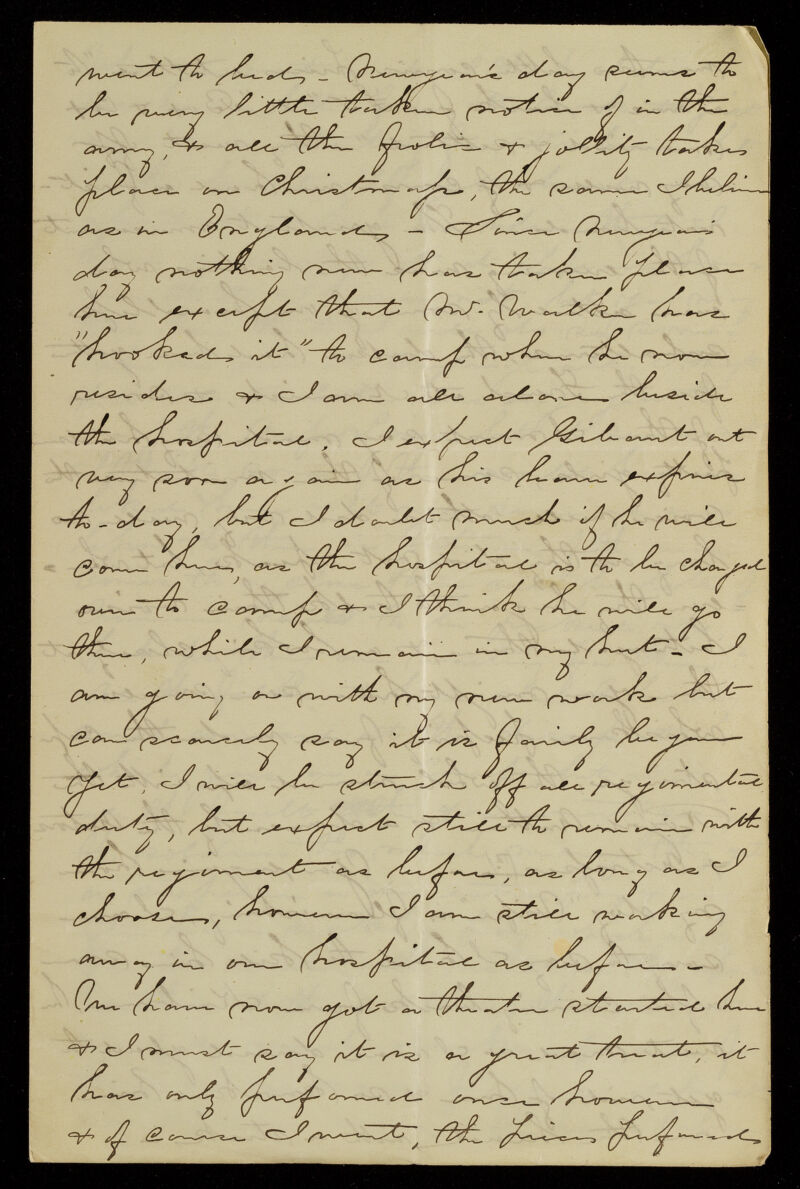 went to bed - Newyear's day seems to
be very little taken notice of in the
army, & all the frolic & jollity takes
place on Christmass, the same I believe
as in England, - Since Newyears
day nothing new has taken place
here except that Mr. Walker has
"hooked it" to camp where he now
resides & I am all alone beside
the hospital. I expect Gibaut out
very soon again as his leave expires
to-day, but I doubt much if he will
come here, as the hospital is to be changed
over to camp & I think he will go
there, while I remain in my hut - I
am going on with my new work but
can scarcely say it is fairly begun
yet. I will be struck off all regimental
duty, but expect still to remain with
the regiment as before, as long as I
choose, however I am still working
away in our hospital as before -
We have now got a theatre started here
& I must say it is a great treat, it
has only performed once however
& of course I went, the pieces performed